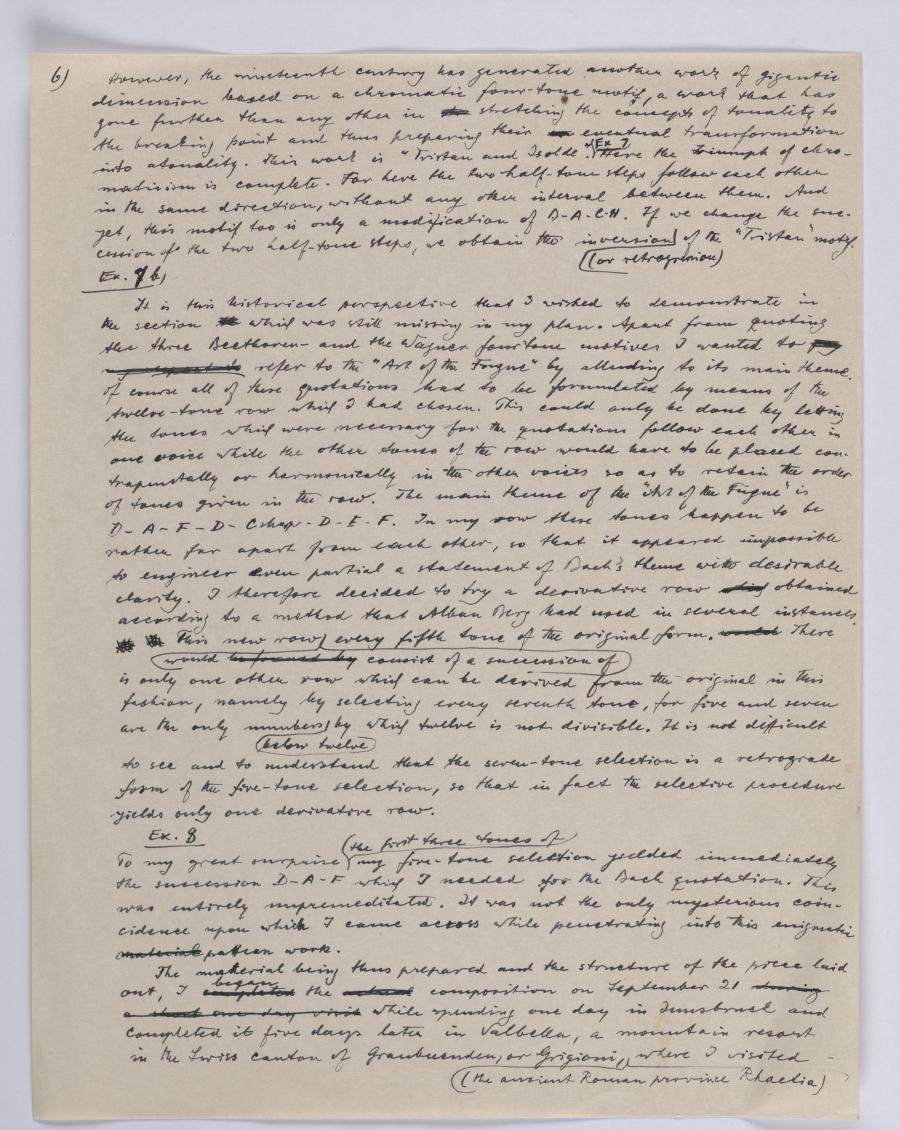 6)
However, the nineteenth century has generated another work of gigantic
dimension based on a chromatic four-tone motif, a work that has
gone further than any other in the stretching the concepts of tonality to
the breaking point and thus preparing their eventual transformation
into atonality. This work is "Tristan and Isolde". (Ex. 7 Here the triumph of chro-
maticism is complete. For here the two half-tone steps follow each other
in the same direction, without any other interval between them. And
yet, this motif too is only a modification of B-A-C-H. If we change the suc-
cession of the two half-tone steps, we obtain the inversion of the "Tristan" motif.
(or retrogression)
Ex. 7b)
It is this historical perspective that I wished to demonstrate in
the section which was still missing in my plan. Apart from quoting
the three Beethoven- and the Wagner fourtone motives I wanted to
refer to the "Art of the Fugue" by alluding to its main theme.
Of course all of these quotations had to be formulated by means of the
twelve-tone row which I had chosen. This could only be done by letting
the tones which were necessary for the quotations follow each other in
one voice while the other tones of the row would have to be placed con-
trapuntally or harmonically in the other voices so as to retain the order
of tones given in the row. The main theme of the "Art of the Fugue" is
D-A-F-D-Csharp-D-E-F. In my row these tones happen to be
rather far apart from each other, so that it appeared impossible
to engineer even partial a statement of Bach's theme with desirable
clarity. I therefore decided to try a derivative row obtained
according to a method that Alban Berg had used in several instances.
This new row every fifth tone of the original form. would There
would be formed by consist of a succession of
is only one other row which can be derived from the original in this
fashion, namely by selecting every seventh tone, for five and seven
are the only numbers by which twelve is not divisible. It is not difficult
below twelve
to see and to understand that the seven-tone selection is a retrograde
form of the five-tone selection, so that in fact the selective procedure
yields only one derivative row.
Ex. 8
(the first three tones of
To my great surprise my five-tone selection yielded immediately
the succession D-A-F which I needed for the Bach quotation. This
was entirely unpremeditated. It was not the only mysterious coin-
cidence upon which I came across while penetrating into this enigmatic
material pattern work.
The material being thus prepared and the structure of the piece laid
began
out, I completed the actual composition on September 21 during
a short one day visit while spending one day in Innsbruck and
completed it five days later in Valbella, a mountain resort
in the Swiss canton of Graubuenden, or Grigioni, where I visited
(the ancient Roman province Rhaetia)